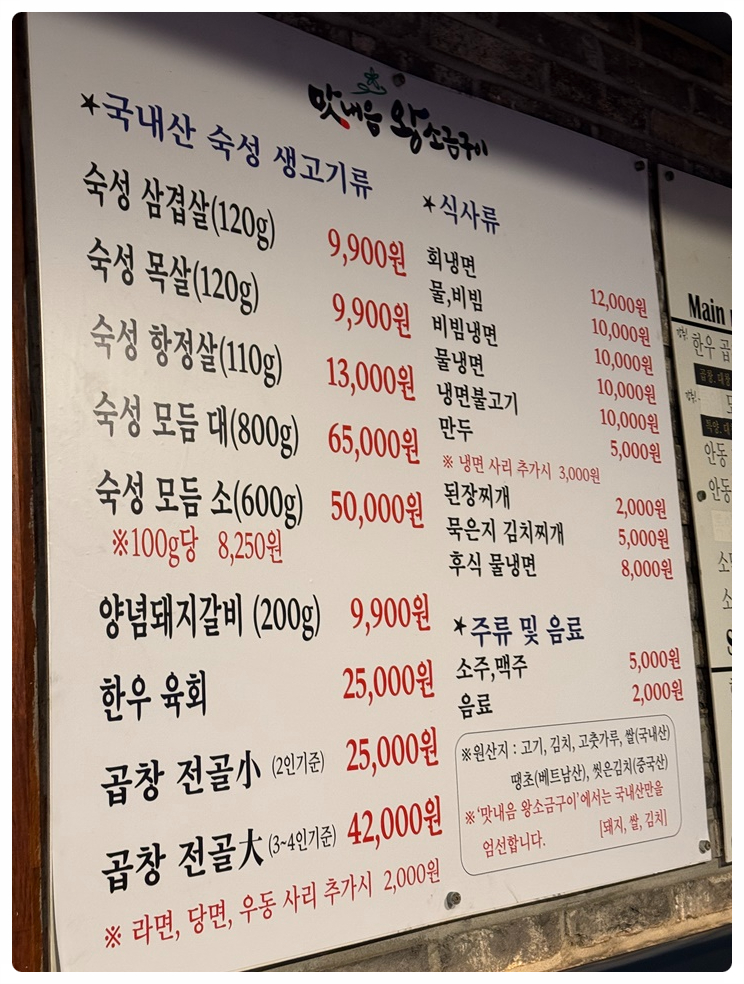 맛내음 왕소금구이
★국내산 숙성 생고기류
숙성 삼겹살(120g) 9,900원
숙성 목살(120g) 9,900원
숙성 항정살(110g) 13,000원
숙성 모듬 대(800g) 65,000원
숙성 모듬 소(600g) 50,000원
※100g당 8,250원
양념돼지갈비 (200g) 9,900원
한우 육회 25,000원
곱창 전골小 (2인기준) 25,000원
곱창 전골大 (3~4인기준) 42,000원
※ 라면, 당면, 우동 사리 추가시 2,000원
★식사류
회냉면 12,000원
물,비빔 10,000원
비빔냉면 10,000원
물냉면 10,000원
냉면불고기 10,000원
만두 5,000원
※ 냉면 사리 추가시 3,000원
된장찌개 2,000원
묵은지 김치찌개 5,000원
후식 물냉면 8,000원
★주류 및 음료
소주,맥주 5,000원
음료 2,000원
※원산지 : 고기, 김치, 고춧가루, 쌀(국내산)
땡초(베트남산), 씻은김치(중국산)
※'맛내음 왕소금구이'에서는 국내산만을
엄선합니다. [돼지, 쌀, 김치]
Main
한우 곱
안동
안동